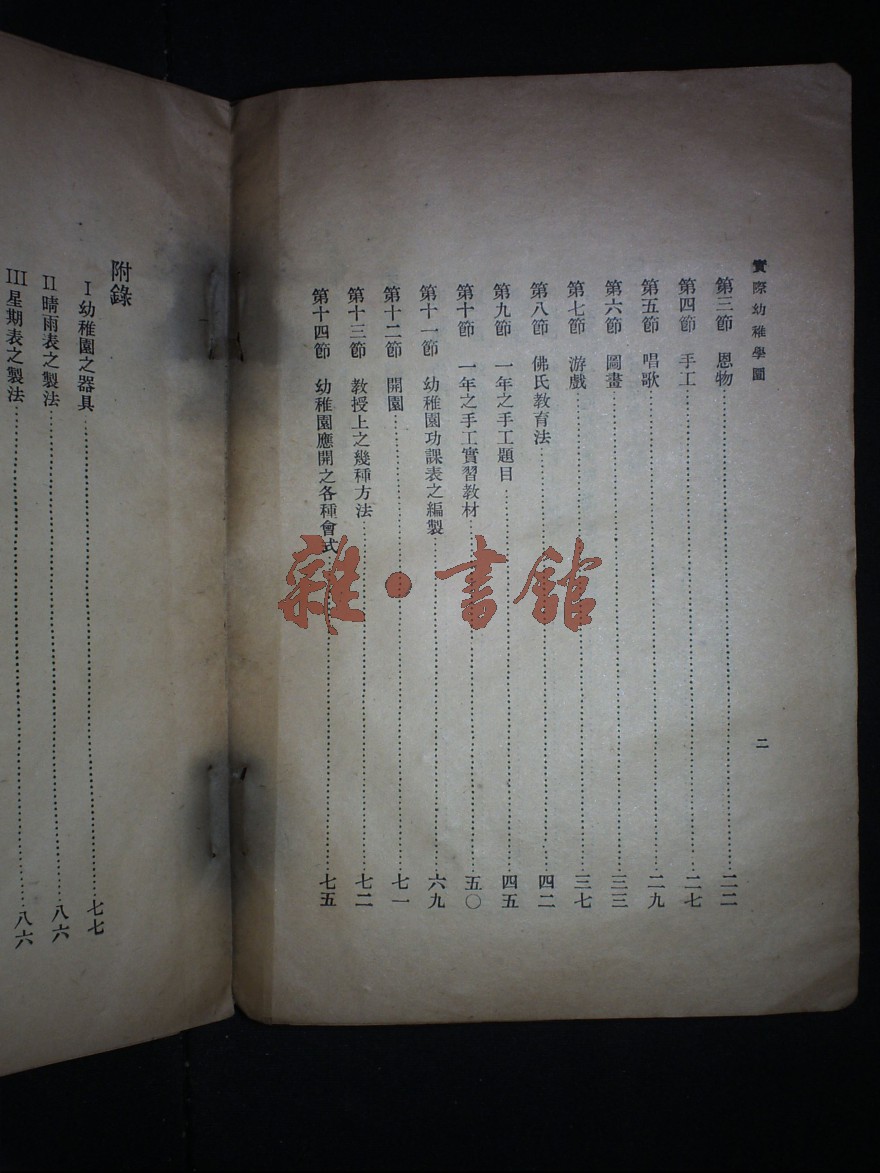 實際幼稚學 二
第三節 恩物……二二
第四節 手工……二七
第五節 唱歌……二九
第六節 圖畫……三三
第七節 游戲……三七
第八節 佛氏教育法……四二
第九節 一年之手工題目……四五
第十節 一年之手工實習教材……五〇
第十一節 幼稚園功課表之編製……六九
第十二節 開園……七一
第十三節 教授上之幾種方法……七二
第十四節 幼稚園應開之各種會式……七五
附錄
I 幼稚園之器具……七七
II 晴雨表之製法……八六
III 星期表之製法……八六
雜·書館